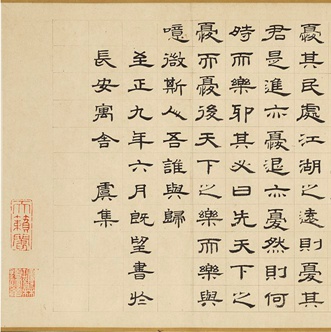 憂其民處江湖之遠則憂其
君是進亦憂退亦憂然則何
時而樂耶其必曰先天下之
憂而憂後天下之樂而樂與
噫微斯人吾誰與歸
至正九年六月既望書於
長安寓舍　虞集
天籟閣